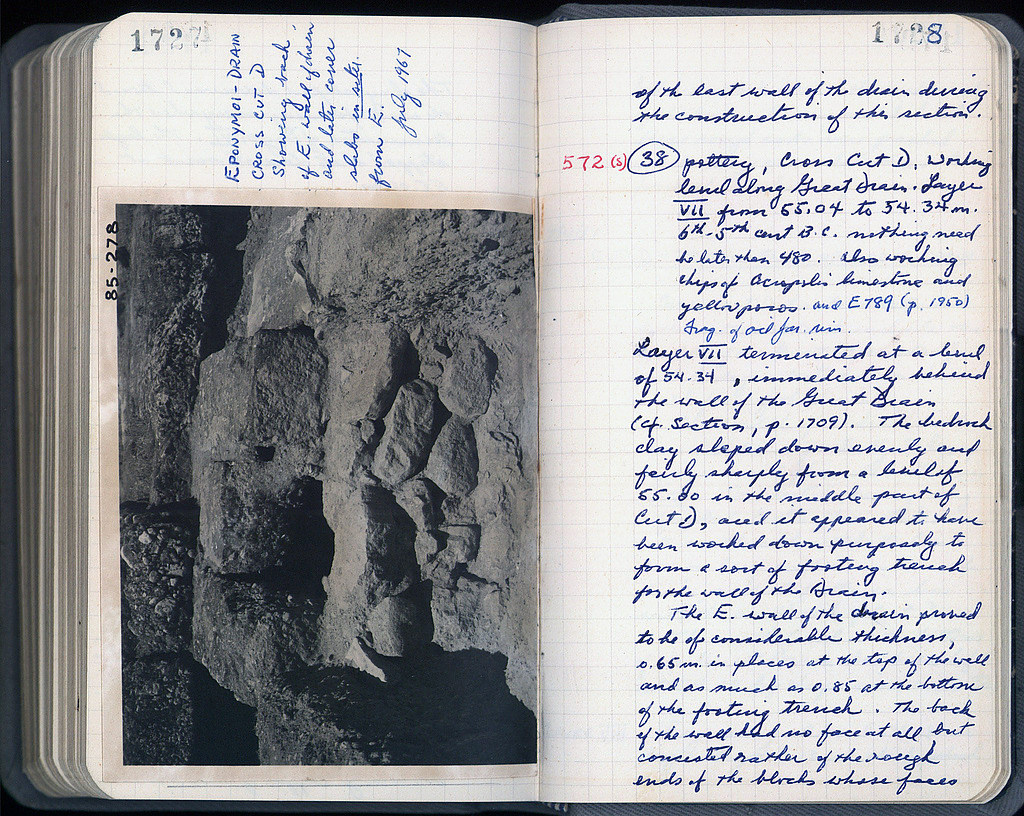 1727
EPONYMOI-DRAIN
CROSS CUT D
Showing back
of E. wall of drain
and later cover
slabs in situ.
from E.
July 1967
85-278
1728
of the east wall of the drain during
the construction of this section.
572 (s) 38 pottery, Cross Cut D. Working
level along Great Drain. Layer
VII from 55.04 to 54.34 m.
6th-5th cent B.C. nothing need
be later than 480. also working
chips of Acropolis limestone and
yellow poros. and E789 (p. 1950)
frag. of oil jar rim.
Layer VII terminated at a level
of 54.34, immediately behind
the wall of the Great Drain
(cf. Section, p. 1709). The bedrock
clay sloped down evenly and
fairly sharply from a level of
55.00 in the middle part of
Cut D, and it appeared to have
been worked down purposely to
form a sort of footing trench
for the wall of the Drain.
The E. wall of the drain proved
to be of considerable thickness,
0.65 m. in places at the top of the wall
and as much as 0.85 at the bottom
of the footing trench. The back
of the wall had no face at all but
consisted rather of the rough
ends of the blocks whose faces